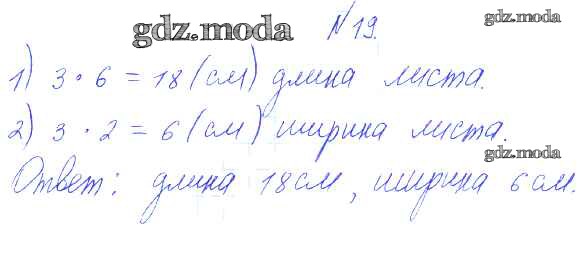 gdz.moda № 19. gdz.moda
1) 3 · 6 = 18 (см) длина листа.
2) 3 · 2 = 6 (см) ширина листа.
gdz.moda
Ответ: длина 18 см, ширина 6 см.